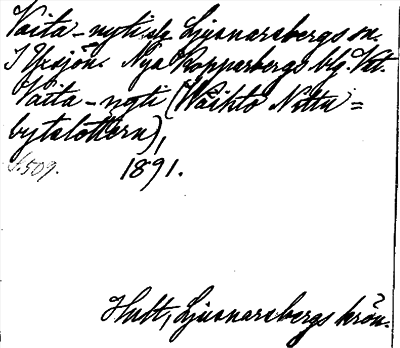 Vaita-nyti, Ljusnarsbergs sn.
Nya Kopparbergs blg. Vst.
Vaita-nyti (Waihto Nittu=
bytalottern),
s. 509. 1891.
Hult, Ljusnarsbergs krön.